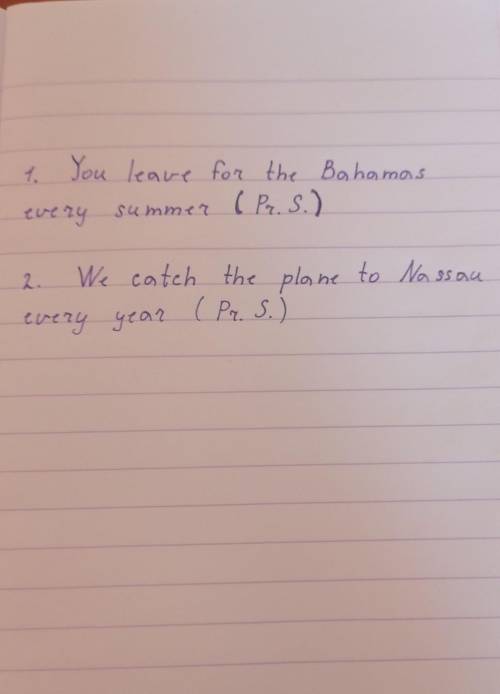 1. You leave for the Bahamas
every summer (Pr. S.)
2. We catch the plane to Nassau
every year (Pr. S.)